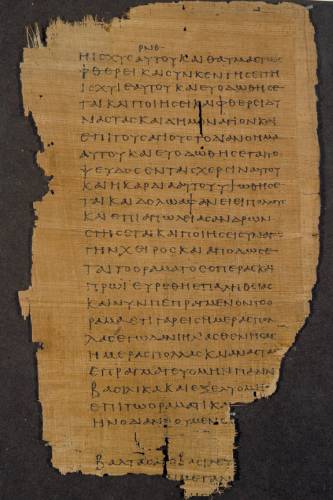 ΡΝΘ
ΗΙΣΧΥΣΑΥΤΟΥΚΑΙΘΑΥΜΑΣΤΩΣ
ΦΘΕΡΕΙΚΑΙΟΥΚΕΝΤΗΕΣΤΗ
ΙΣΧΥΙΕΑΥΤΟΥΚΑΙΕΥΟΔΩΘΗΣΕ
ΤΑΙΚΑΙΠΟΙΗΣΕΙΚΑΙΦΘΕΡΕΙΔΥ
ΝΑΣΤΑΣΚΑΙΔΗΜΟΝΑΓΙΩΝΚΑΙ
ΕΠΙΤΟΥΣΑΓΙΟΥΣΤΟΔΙΑΝΟΗΜΑ
ΑΥΤΟΥΚΑΙΕΥΟΔΩΘΗΣΕΤΑΙΤΟ
ΨΕΥΔΟΣΕΝΤΑΙΣΧΕΡΣΙΝΑΥΤΟΥ
ΚΑΙΗΚΑΡΔΙΑΑΥΤΟΥΥΨΩΘΗΣΕ
ΤΑΙΚΑΙΔΟΛΩΑΦΑΝΙΕΙΠΟΛΛΟΥΣ
ΚΑΙΕΠΙΑΠΩΛΕΙΑΣΑΝΔΡΩΝ
ΣΤΗΣΕΤΑΙΚΑΙΠΟΙΗΣΕΙΣΥΝΑΓΩ
ΓΗΝΧΕΙΡΟΣΚΑΙΑΠΟΔΩΣΕ
ΤΑΙΤΟΟΡΑΜΑΤΟΕΣΠΕΡΑΣΚΑΙ
ΠΡΩΙΕΥΡΕΘΗΕΠΑΛΗΘΕΙΑΣ
ΚΑΙΝΥΝΠΕΦΡΑΓΜΕΝΟΝΤΟΟ
ΡΑΜΑΕΤΙΓΑΡΕΙΣΗΜΕΡΑΣΠΟΛ
ΛΑΣΕΓΩΔΑΝΙΗΛΑΣΘΕΝΗΣΑΣ
ΗΜΕΡΑΣΠΟΛΛΑΣΚΑΙΑΝΑΣΤΑΣ
ΕΠΡΑΓΜΑΤΕΥΟΜΗΝΠΑΛΙΝ
ΒΑΣΙΛΙΚΑΚΑΙΕΞΕΛΥΟΜΗΝ
ΕΠΙΤΩΟΡΑΜΑΤΙΚΑΙ
ΗΝΟΔΙΑΝΟΟΥΜΕΝΟΣ
ΒΑΛΤΑΣΑΡΟΒΑΣΙΛΕΥΣ